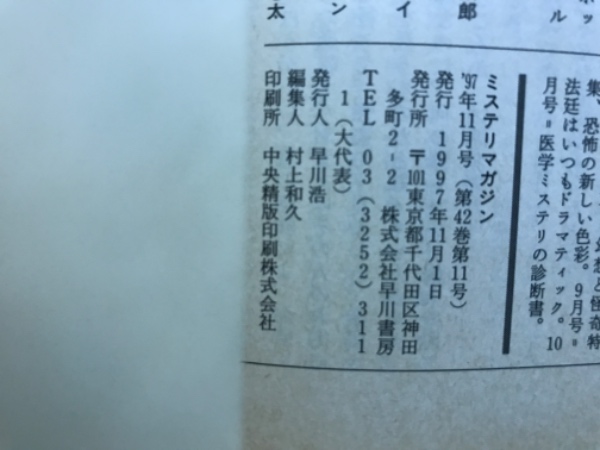 ポッ
ル
郎
イ
ン
太
幻想と怪奇特
集、恐怖の新しい色彩。9月号=
法廷はいつもドラマティック。10
月号=医学ミステリの診断書。
ミステリマガジン
'97年11月号(第42巻第11号)
発行 1997年11月1日
発行所 〒101東京都千代田区神田
多町2-2 株式会社早川書房
TEL 03(3252)311
1(大代表)
発行人 早川浩
編集人 村上和久
印刷所 中央精版印刷株式会社